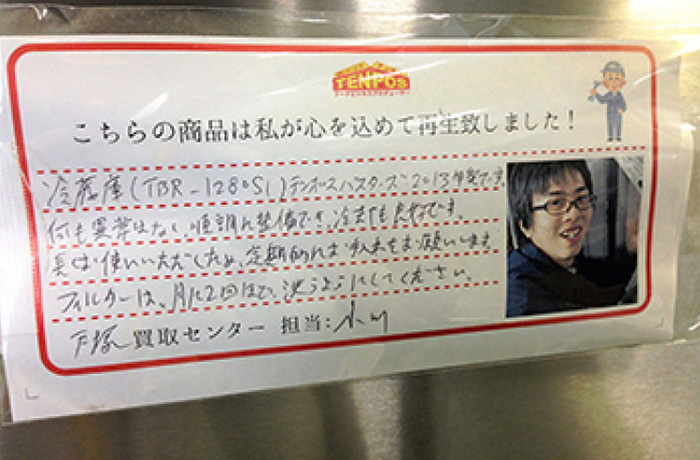 TENPOS
フードビジネスプロデューサー
こちらの商品は私が心を込めて再生致しました！
冷蔵庫（TBR-128OS1）テンポスバスターズ 2013年製です。
何も異常はなく、順調に整備でき、冷えも良好です。
長くお使いいただくため、定期的なお手入れをお願いします。
フィルターは、月に2回ほど、洗うようにしてください。
戸塚 買取センター 担当：小川